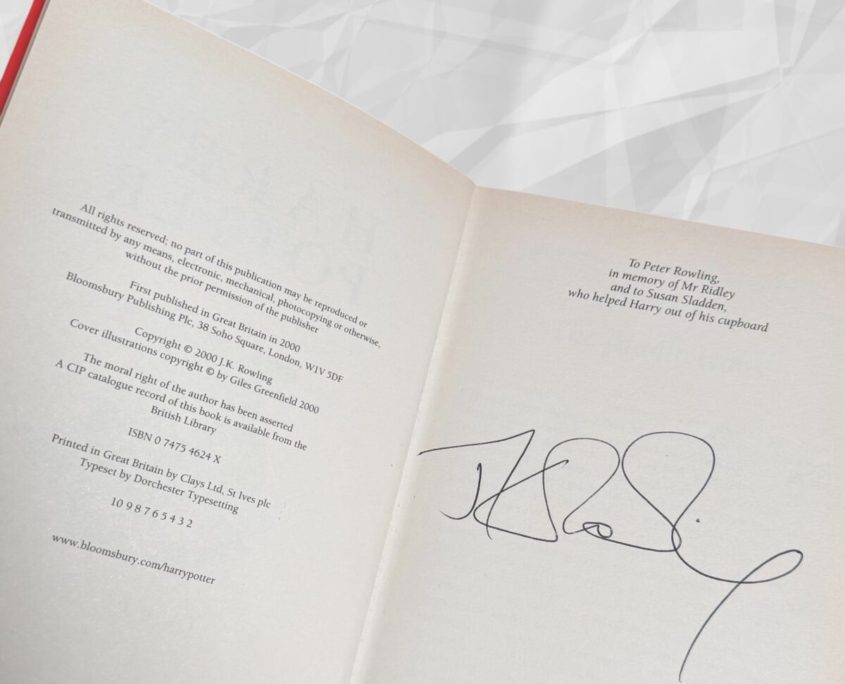 All rights reserved; no part of this publication may be reproduced or
transmitted by any means, electronic, mechanical, photocopying or otherwise,
without the prior permission of the publisher
First published in Great Britain in 2000
Bloomsbury Publishing Plc, 38 Soho Square, London, W1V 5DF
Copyright © 2000 J.K. Rowling
Cover illustrations copyright © by Giles Greenfield 2000
The moral right of the author has been asserted
A CIP catalogue record of this book is available from the
British Library
ISBN 0 7475 4624 X
Printed in Great Britain by Clays Ltd, St Ives plc
Typeset by Dorchester Typesetting
10 9 8 7 6 5 4 3 2
www.bloomsbury.com/harrypotter
To Peter Rowling,
in memory of Mr Ridley
and to Susan Sladden,
who helped Harry out of his cupboard